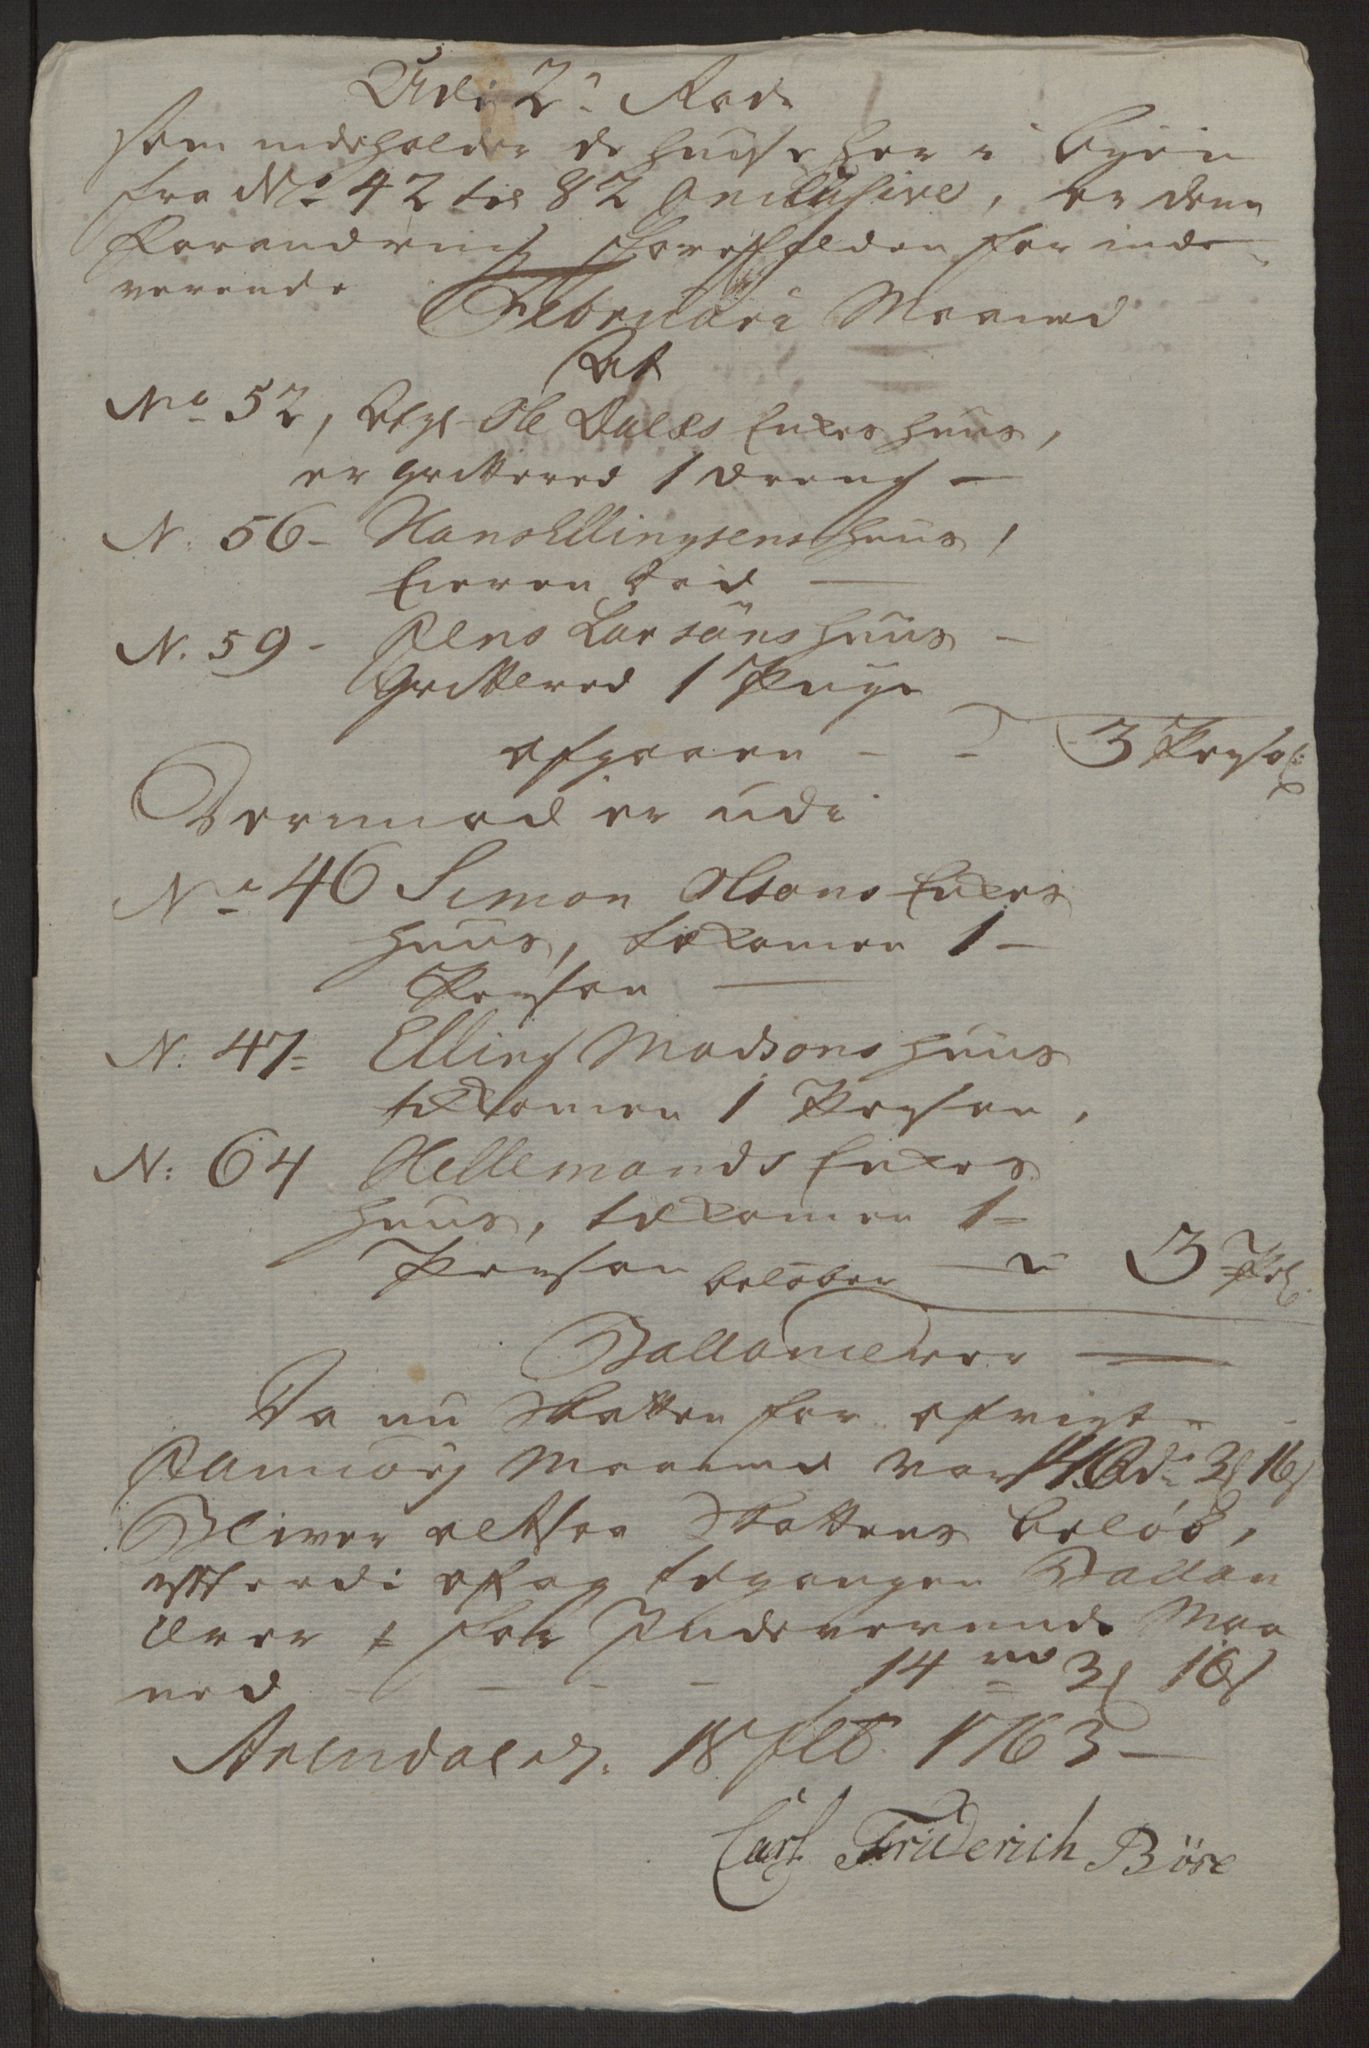 Udi 2n Rode
som indeholder de huuse her i byen
fra No 42 til 82 Inclusive, er denne
Forandring forefalden for inde
verende
Februari Maaned
At
No 52, Ole Dales Enkes huus,
er qvittered 1 dreng —
N. 56 - Hans Ellingsens huus,
Eieren død —
N. 59 - Jens Larsöns huus —
Qvittered 1 Pige
afgaaen - - 3 Perso:
Derimod er udi
No 46 Simon Olsons Enkes
huus, tilkomen 1 —
Person —
N: 47 - Elling Madsons huus
tilkomen 1 Person,
N: 64 Hellemands Enkes
huus, tilkomen 1 -
Person beløber — 3 Prs:
Ballancerer —
Da nu Skatten for afvigte
Januarj Maaned var 14 Rd 3 16
Bliver altsaa Skattens beløb,
efterdi af og tilgangen Ballan
cerer for Indeverende Maa
ned - - - - 14 rd 3 16
Arendal d. 18 Feb. 1763 —
Carl Friderich Böse